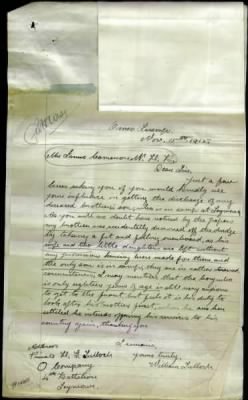 Nov. 15th 1915
Dear Sir,
Just a few
lines asking you if you would kindly use
your influence in getting the discharge of my
deceased brothers son, who is in camp at
As you will no doubt have noticed by the papers
my brother was accidently drowned off the dredge
by taking a fit and falling overboard, as his
wife and two little daughters are left without
any provisions having been made for them and
the only son is in camp, they are in rather straitened
circumstances, I may mention that the boy who
is only eighteen years of age is still very anxious
to get to the front but feels it is his duty to
look after his mother first when he and has
settled he intends offering his services to his
country again, thanking you
I remain
yours truly,
William Tulloch
Address
Private
D Company
4th Battalion